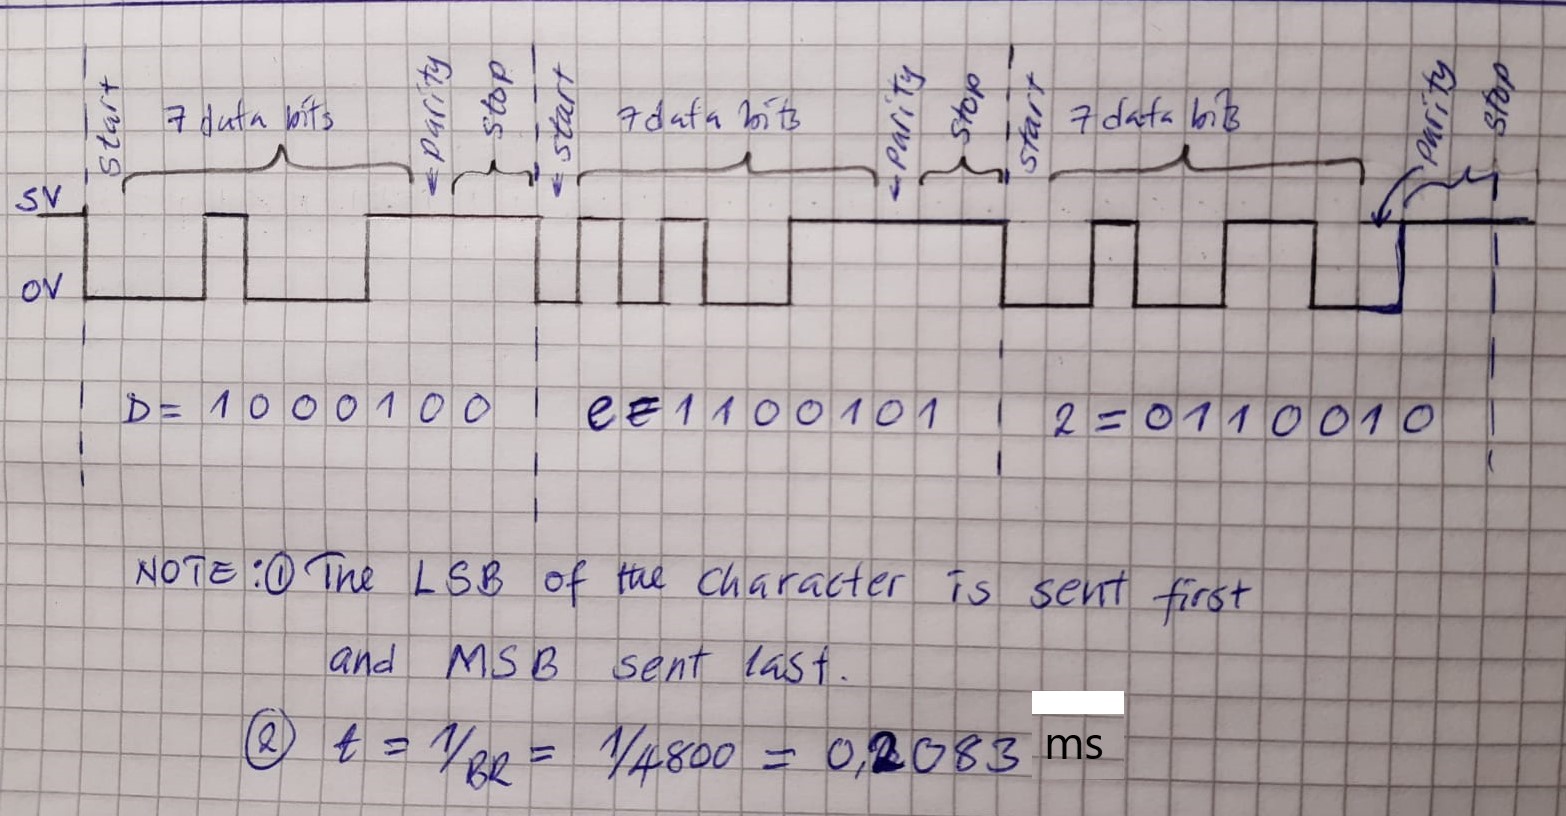 Start 7 data bits parity stop start 7 data bits parity stop start 7 data bits parity stop
5V
0V
D = 1 0 0 0 1 0 0 e = 1 1 0 0 1 0 1 2 = 0 1 1 0 0 1 0
NOTE: ① The LSB of the character is sent first
and MSB sent last.
② t = 1/BR = 1/4800 = 0,2083 ms